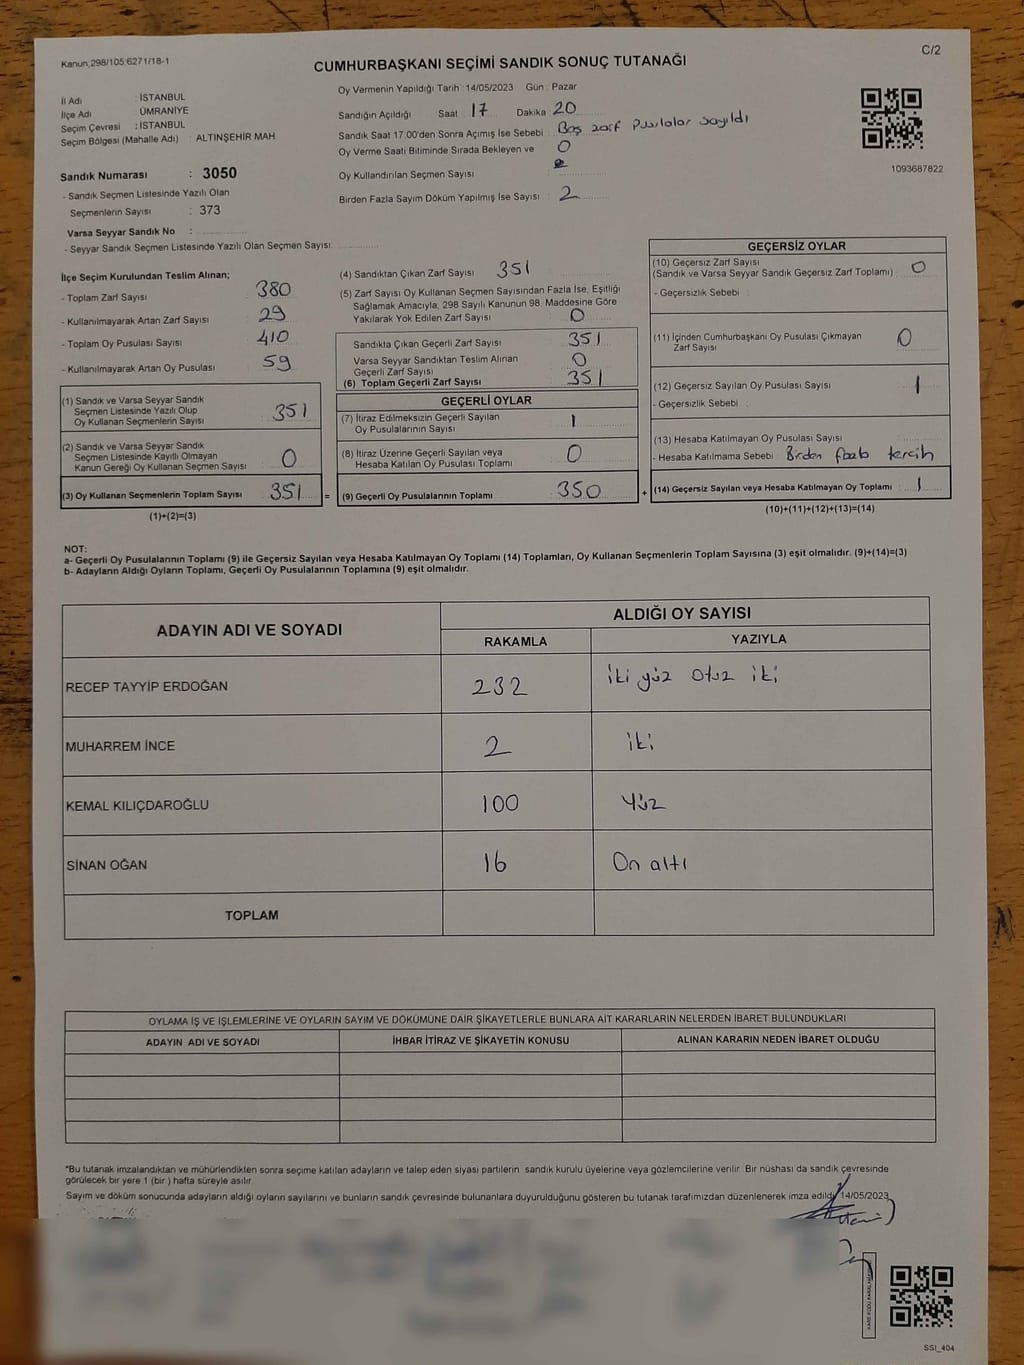 Kanun;298/105;6271/18-1
C/2
CUMHURBAŞKANI SEÇİMİ SANDIK SONUÇ TUTANAĞI
İl Adı : İSTANBUL
İlçe Adı : ÜMRANİYE
Seçim Çevresi : İSTANBUL
Seçim Bölgesi (Mahalle Adı) : ALTINŞEHİR MAH
Sandık Numarası : 3050
- Sandık Seçmen Listesinde Yazılı Olan
Seçmenlerin Sayısı : 373
Varsa Seyyar Sandık No :
- Seyyar Sandık Seçmen Listesinde Yazılı Olan Seçmen Sayısı:
Oy Vermenin Yapıldığı Tarih : 14/05/2023 Gün : Pazar
Sandığın Açıldığı Saat : 17 Dakika : 20
Sandık Saat 17:00'den Sonra Açımış İse Sebebi : Boş zarf pusulalar sayıldı
Oy Verme Saati Bitiminde Sırada Bekleyen ve 0
Oy Kullandırılan Seçmen Sayısı
Birden Fazla Sayım Döküm Yapılmış İse Sayısı : 2
1093687822
İlçe Seçim Kurulundan Teslim Alınan;
- Toplam Zarf Sayısı 380
- Kullanılmayarak Artan Zarf Sayısı 29
- Toplam Oy Pusulası Sayısı 410
- Kullanılmayarak Artan Oy Pusulası 59
(1) Sandık ve Varsa Seyyar Sandık
Seçmen Listesinde Yazılı Olup
Oy Kullanan Seçmenlerin Sayısı 351
(2) Sandık ve Varsa Seyyar Sandık
Seçmen Listesinde Kayıtlı Olmayan
Kanun Gereği Oy Kullanan Seçmen Sayısı 0
(3) Oy Kullanan Seçmenlerin Toplam Sayısı 351 =
(1)+(2)=(3)
(4) Sandıktan Çıkan Zarf Sayısı 351
(5) Zarf Sayısı Oy Kullanan Seçmen Sayısından Fazla İse, Eşitliği
Sağlamak Amacıyla, 298 Sayılı Kanunun 98. Maddesine Göre
Yakılarak Yok Edilen Zarf Sayısı 0
Sandıkta Çıkan Geçerli Zarf Sayısı 351
Varsa Seyyar Sandıktan Teslim Alınan
Geçerli Zarf Sayısı 0
(6) Toplam Geçerli Zarf Sayısı 351
GEÇERLİ OYLAR
(7) İtiraz Edilmeksizin Geçerli Sayılan
Oy Pusulalarının Sayısı 1
(8) İtiraz Üzerine Geçerli Sayılan veya
Hesaba Katılan Oy Pusulası Toplamı 0
(9) Geçerli Oy Pusulalarının Toplamı 350 +
GEÇERSİZ OYLAR
(10) Geçersiz Zarf Sayısı
(Sandık ve Varsa Seyyar Sandık Geçersiz Zarf Toplamı) : 0
- Geçersizlik Sebebi :
(11) İçinden Cumhurbaşkanı Oy Pusulası Çıkmayan
Zarf Sayısı 0
(12) Geçersiz Sayılan Oy Pusulası Sayısı 1
- Geçersizlik Sebebi :
(13) Hesaba Katılmayan Oy Pusulası Sayısı
- Hesaba Katılmama Sebebi : Birden fazla tercih
(14) Geçersiz Sayılan veya Hesaba Katılmayan Oy Toplamı : 1
(10)+(11)+(12)+(13)=(14)
NOT:
a- Geçerli Oy Pusulalarının Toplamı (9) ile Geçersiz Sayılan veya Hesaba Katılmayan Oy Toplamı (14) Toplamları, Oy Kullanan Seçmenlerin Toplam Sayısına (3) eşit olmalıdır. (9)+(14)=(3)
b- Adayların Aldığı Oyların Toplamı, Geçerli Oy Pusulalarının Toplamına (9) eşit olmalıdır.
ADAYIN ADI VE SOYADI
ALDIĞI OY SAYISI
RAKAMLA YAZIYLA
RECEP TAYYİP ERDOĞAN 232 iki yüz otuz iki
MUHARREM İNCE 2 iki
KEMAL KILIÇDAROĞLU 100 Yüz
SİNAN OĞAN 16 On altı
TOPLAM
OYLAMA İŞ VE İŞLEMLERİNE VE OYLARIN SAYIM VE DÖKÜMÜNE DAİR ŞİKAYETLERLE BUNLARA AİT KARARLARIN NELERDEN İBARET BULUNDUKLARI
ADAYIN ADI VE SOYADI İHBAR İTİRAZ VE ŞİKAYETİN KONUSU ALINAN KARARIN NEDEN İBARET OLDUĞU
*Bu tutanak imzalandıktan ve mühürlendikten sonra seçime katılan adayların ve talep eden siyasi partilerin sandık kurulu üyelerine veya gözlemcilerine verilir. Bir nüshası da sandık çevresinde
görülecek bir yere 1 (bir ) hafta süreyle asılır.
Sayım ve döküm sonucunda adayların aldığı oyların sayılarını ve bunların sandık çevresinde bulunanlara duyurulduğunu gösteren bu tutanak tarafımızdan düzenlenerek imza edildi. 14/05/2023
SSI_404